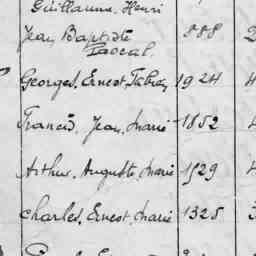 Guillaume, Henri
Jean Baptiste 888 2
Pascal
Georges, Ernest, Fabien 1924 4
Francis, Jean, Marie 1852 4
Arthur, Auguste, Marie 1529 4
Charles, Ernest, Marie 1325 3